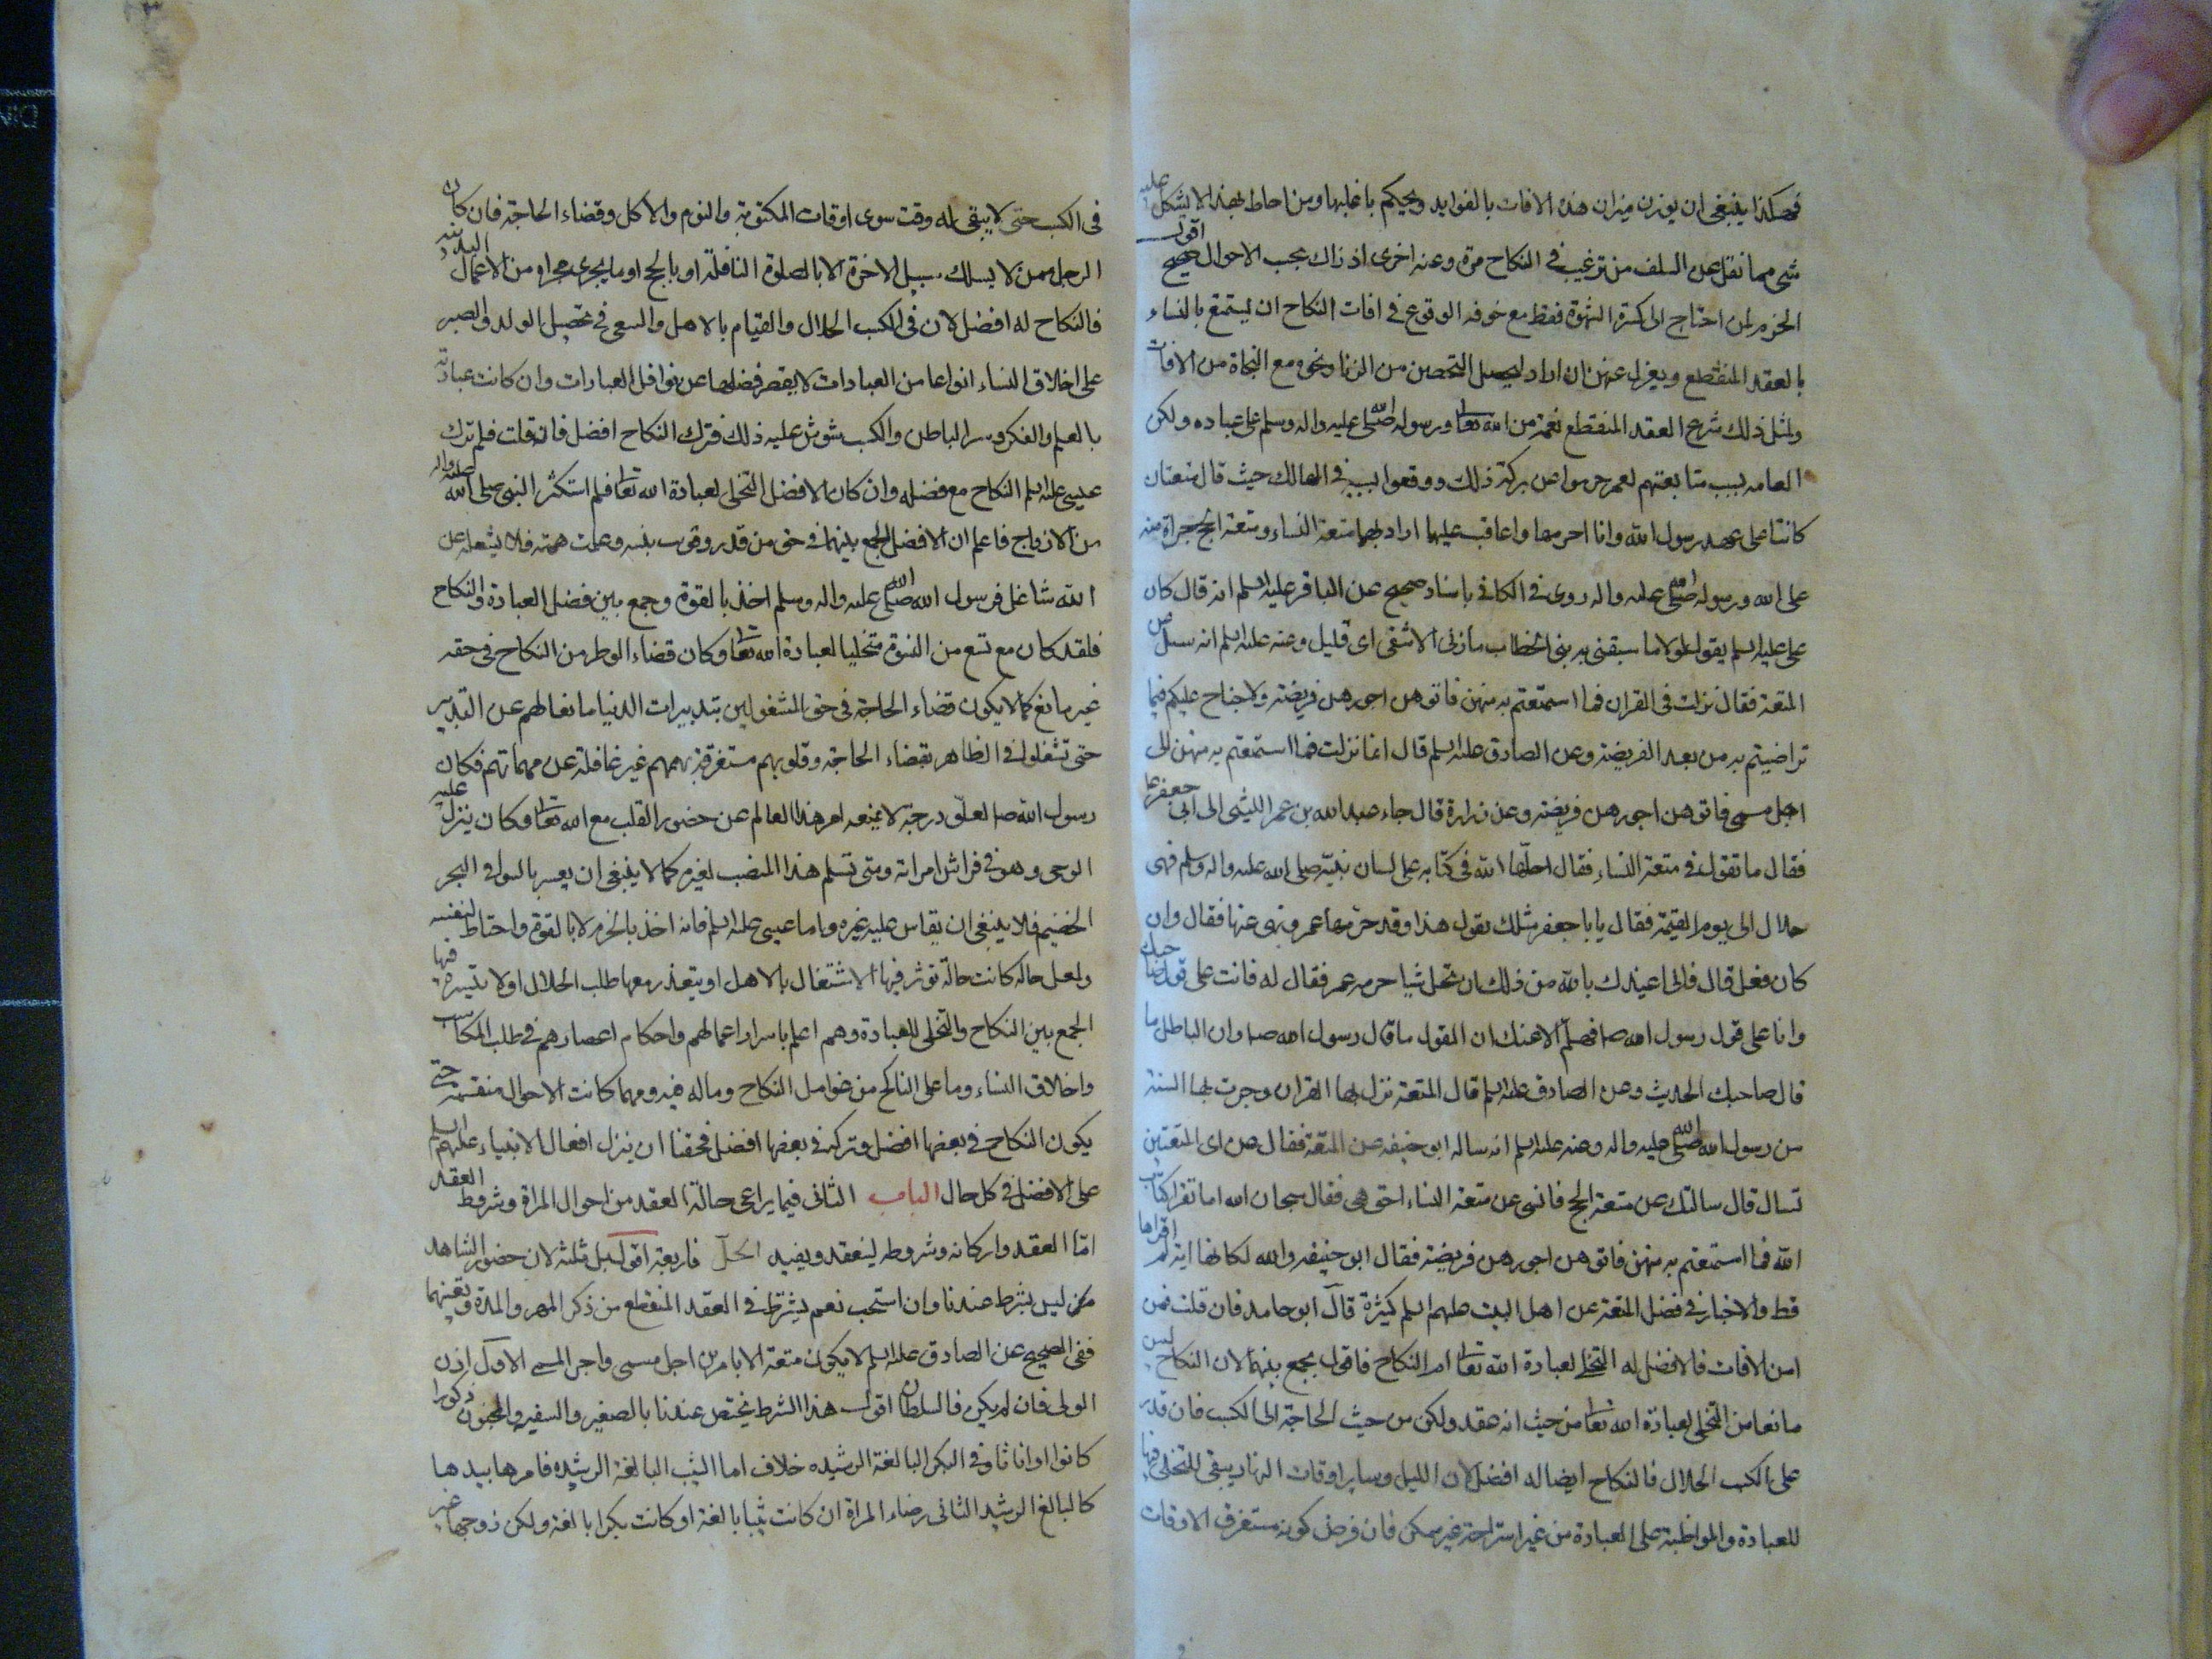 فهكذا ينبغي ان يوزن ميزان هذه الافات بالفوايد ويحكم باغلبها ومن احاط بهذا لا يشكل عليه
شيء مما نقل عن السلف من ترغيب في النكاح مرة وعنه اخرى اذ ذاك بحسب الاحوال صحيح اقول
الحزم لمن احتاج الى كسرة الشهوة فقط مع خوفه الوقوع في افات النكاح ان يستمتع بالنساء
بالعقد المنقطع ويعزل عنهن ان اراد ليحصل التحصن من الزنا ونحوه مع النجاة من الافات
ولمثل ذلك شرع العقد المنقطع نعمة من الله تعا ورسوله صلى الله عليه واله وسلم على عباده ولكن
العامه بسبب متابعتهم لعمر حرموا عن بركة ذلك ووقعوا بسببه في المهالك حيث قال متعتان
كانتا على عهد رسول الله وانا احرمهما واعاقب عليهما اراد بهما متعة النساء ومتعة الحج جراة منه
على الله ورسوله صلى الله عليه واله روى في الكافي باسناد صحيح عن الباقر عليه السلم انه قال كان
على عليه السلم يقول لولا ما سبقنى به بنى الخطاب ما زنى الا شقى اى قليل وعنه عليه السلم انه سئل عن
المتعة فقال نزلت فى القران فما استمتعتم به منهن فاتوهن اجورهن فريضة ولا جناح عليكم فيما
تراضيتم به من بعد الفريضة وعن الصادق عليه السلم قال انما نزلت فما استمتعتم به منهن الى
اجل مسمى فاتوهن اجورهن فريضة وعن زرارة قال جاء عبد الله بن عمر الليثى الى ابى جعفر ع
فقال ما تقول فى متعة النساء فقال احلها الله فى كتابه على لسان نبيه صلى الله عليه واله وسلم فهى
حلال الى يوم القيمة فقال يا باجعفر مثلك يقول هذا وقد حرمها عمر ونهى عنها فقال وان
كان فعل قال فانى اعيذك بالله من ذلك ان تحل شيا حرمه عمر فقال له فانت على قول صاحبك
وانا على قول رسول الله ص فهلم الاعنك ان القول ما قال رسول الله ص وان الباطل ما
قال صاحبك الحديث وعن الصادق عليه السلم قال المتعة نزل بها القران وجرت بها السنة
من رسول الله صلى الله عليه واله وعنه عليه السلم انه ساله ابو حنيفه عن المتعة فقال عن اى المتعتين
تسال قال سالتك عن متعة الحج فانبئنى عن متعة النساء احق هى فقال سبحان الله اما تقرا كتاب
الله فما استمتعتم به منهن فاتوهن اجورهن فريضة فقال ابو حنيفه والله لكانها اية لم اقراها
قط والاخبار في فضل المتعة عن اهل البيت عليهم السلم كثيرة قال ابو حامد فان قلت فمن
امن الافات فالافضل له التخلى لعبادة الله تعا او النكاح فاقول يجمع بينهما لان النكاح ليس
مانعا من التخلى لعبادة الله تعا من حيث انه عقد ولكن من حيث الحاجة الى الكسب فان قدر
على الكسب الحلال فالنكاح ايضا له افضل لان الليل وساير اوقات النهار يبقى للتخلى فيها
للعبادة والمواظبة على العبادة من غير استراحة غير ممكن فان فرض كونه مستغرق الاوقات
فى الكسب حتى لا يبقى له وقت سوى اوقات المكتوبة والنوم والاكل وقضاء الحاجة فان كان
الرجل ممن لا يسلك سبيل الاخرة الا بالصلوة النافلة او بالحج او ما يجرى مجراه من الاعمال البدنية
فالنكاح له افضل لان في الكسب الحلال والقيام بالاهل والسعى في تحصيل الولد والصبر
على اخلاق النساء انواعا من العبادات لا يقصر فضلها عن نوافل العبادات وان كانت عبادته
بالعلم والفكر وسر الباطن والكسب شوش عليه ذلك فترك النكاح افضل فان قلت فلم ترك
عيسى عليه السلم النكاح مع فضله وان كان الافضل التخلى لعبادة الله تعا فلم استكثر النبى صلى الله عليه واله
من الازواج فاعلم ان الافضل الجمع بينهما في حق من قدر وقويت نفسه وعلت همته فلا يشغله عن
الله شاغل فرسول الله صلى الله عليه واله وسلم اخذ بالقوة وجمع بين فضل العبادة والنكاح
فلقد كان مع تسع من النسوة متخليا لعبادة الله تعا وكان قضاء الوطر من النكاح في حقه
غير مانع كما لا يكون قضاء الحاجة في حق المشغولين بتدبيرات الدنيا مانعا لهم عن التدبير
حتى تشغلون فى الظاهر بقضاء الحاجة وقلوبهم مستغرقة بهممهم غير غافلة عن مهماتهم فكان
رسول الله ص لعلو درجته لا يمنعه امر هذا العالم عن حضور القلب مع الله تعا فكان ينزل عليه
الوحى وهو فى فراش امراته ومتى تسلم هذا المنصب لغيره كما لا ينبغى ان يعبر بالسواقى البحر
الخضيم فلا ينبغى ان يقاس عليه غيره واما عيسى عليه السلم فانه اخذ بالحزم لا بالقوة واحتاط لنفسه
ولعل حاله كانت حالة تؤثر فيها الاشتغال بالاهل او يتعذر معها طلب الحلال اولا يتيسر فيها
الجمع بين النكاح والتخلى للعبادة وهم اعلم باسرار اعمالهم واحكام اعصارهم فى طلب المكاسب
واخلاق النساء وما على الناكح من غوامل النكاح وماله فيه ومهما كانت الاحوال منقسمة حتى
يكون النكاح فى بعضها افضل وتركه فى بعضها افضل فحقنا ان ينزل افعال الانبياء عليهم السلم
على الافضل فى كل حال الباب الثانى فيما يراعى حالة العقد من احوال المراة وشروط العقد
اما العقد واركانه وشروطه لينعقد ويفيد الحل فاربعة اقول بل ثلثة لان حضور الشاهد
مكن ليس بشرط عندنا وان استحب نعم يشترط فى العقد المنقطع من ذكر المهر والمدة وتعينهما
ففى الصحيح عن الصادق عليه السلم لا يكون متعة الا بامرين اجل مسمى واجر المسمى الاول اذن
الولى فان لم يكن فالسلطان اقول هذا الشرط يختص عندنا بالصغير والسفيه والمجنون ذكورا
كانوا او اناثا وفى البكر البالغة الرشيده خلاف اما الثيب البالغة الرشيده فامرها بيدها
كالبالغ الرشيد الثانى رضاء المراة ان كانت ثيبا بالغة او كانت بكرا بالغة ولكن زوجها غير